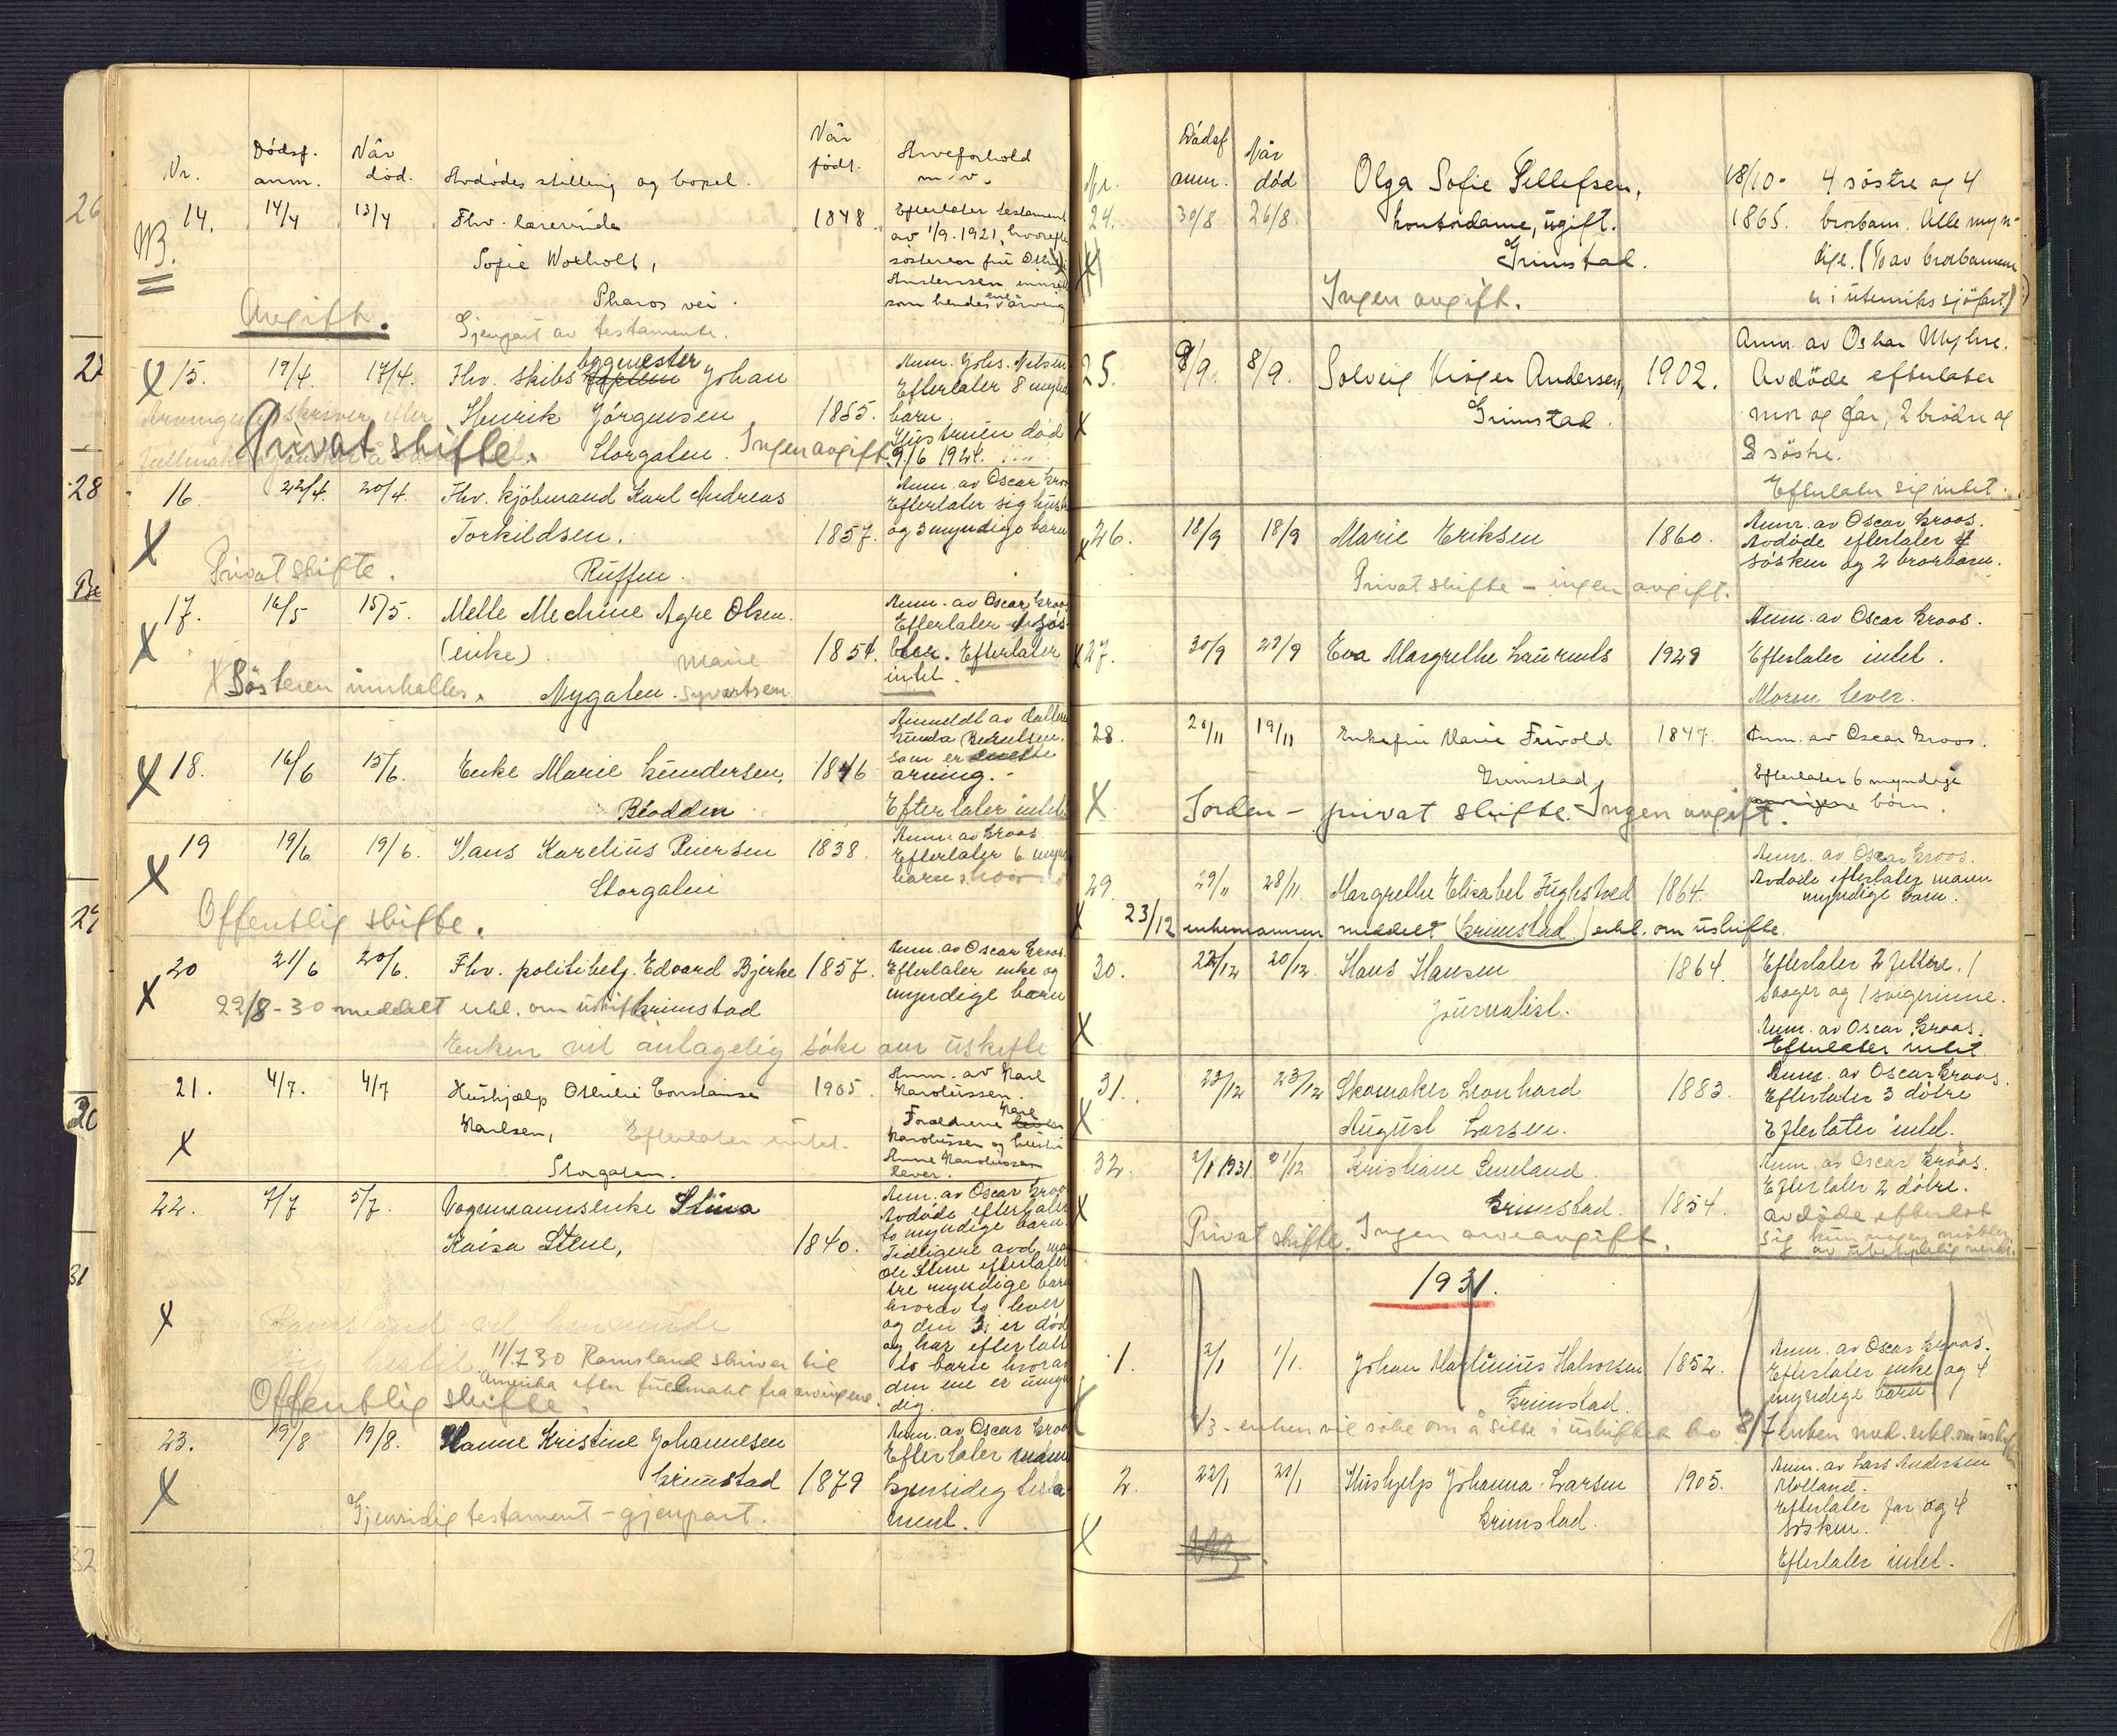 Nr. Dødsf. anm. Når død. Avdødes stilling og bopel. Når født. Arveforhold m.v.
14. 14/4 13/4 Fhv. lærerinde 1848 Efterlater testament
NB. av 1/9. 1921, hvorefter
Sofie Worholt, søsteren fru
Andersen
Pharos vei. som hendes arving
Avgift. Gjenpart av testamente.
X 15. 19/4. 17/4. Fhv. skibsbygmester Johan Anm. Johs. Nilsen
Efterlater 8 myndige
Henrik Jørgensen 1855. barn.
Privat skifte. Storgaten. Ingen avgift. Hustruen død
9/6 1924.
16 22/4 20/4. Fhv. kjøbmand Karl Andreas Anm. av Oscar Groos
Efterlater sig hustru
X Torkildsen. 1857. og 3 myndige barn
Privat skifte. Ruffen.
17. 16/5 15/5. Melle Mechine Agre Olsen. Anm. av Oscar Groos
Efterlater
X (enke). Marie 1854. Efterlater
Søsteren innkalles. Nygaten. Syvertsen intet.
Anmeldt av datteren
Gunda Berntsen,
X 18. 16/6 15/6. Enke Marie Gundersen, 1846 som er eneste
arving.-
Biodden Efterlater intet.
19 19/6 19/6. Hans Karelius Reiersen 1838. Anm. av Groos.
Efterlater 6 myndige
X Storgaten barn
Offentlig skifte.
20 21/6 20/6. Fhv. politibetj. Edvard Bjerke 1857. Anm. av Oscar Groos.
Efterlater enke og
X 22/8-30 meddelt erkl. om uskifte Grimstad myndige barn
Enken vil antagelig søke om uskifte
21. 4/7. 4/7 Hushjælp Othilie Constanse 1905. Anm. av Karl
Karolussen.
Karlsen, Efterlater intet. Foreldrene Karl
Karolussen og hustru
X Storgaten. Anne Karolussen
lever.
22. 7/7 5/7. Vognmannsenke Stina Anm. av Oscar Groos
Avdøde efterlater
Kaisa Stene, 1840. to myndige barn.
Tidligere avd. mann
Ole Stene efterlater
tre myndige barn
hvorav to lever
X Ramsland vil henvende og den 3. er død
sig hertil. 11/7 30 Ramsland skriver til og har efterlatt
Amerika efter fullmakt fra arvingene. to barn hvorav
Offentlig skifte. den ene er umyndig.
23. 19/8 19/8. Hanne Kristine Johannesen Anm. av Oscar Groos
Efterlater mann
X Grimstad 1879 Gjensidig testament.
Gjensidig testament - gjenpart.
Nr. Dødsf. anm. Når død
24. 30/8 26/8. Olga Sofie Tellefsen, 18/10- 4 søstre og 4
kontordame, ugift. 1865. brorbarn. Alle myn-
Grimstad. dige. (1 av brorbarnene
Ingen avgift. er i utenriks sjøfart)
Anm. av Oskar Myhre.
25. 9/9. 8/9. Solveig Krøger Andersen, 1902. Avdøde efterlater
X Grimstad. mor og far, 2 brødre og
søstre.
Efterlater sig intet.
X 26. 18/9 18/9 Marie Eriksen 1860. Anm. av Oscar Groos.
Avdøde efterlater
søsken og 2 brorbarn.
Privat skifte - ingen avgift.
Anm. av Oscar Groos.
X 27. 30/9 29/9 Eva Margrethe Laurents 1929 Efterlater intet.
Moren lever.
28. 20/11 19/11 Enkefru Marie Frivold 1847. Anm. av Oscar Groos.
Grimstad Efterlater 6 myndige
X Jorden - privat skifte. Ingen avgift. barn.
Anm. av Oscar Groos.
29. 29/11 28/11 Margrethe Elisabet Fuglestved 1864. Avdøde efterlater mann
myndige barn.
X 23/12 enkemannen meddelt (Grimstad) erkl. om uskifte.
30. 22/12 20/12. Hans Hansen 1864. Efterlater 2 fettere. 1
svoger og 1 svigerinne.
X Journalist. Anm. av Oscar Groos.
Efterlater intet
31. 23/12 23/12 Skomaker Leonhard 1883. Anm. av Oscar Groos.
Efterlater 3 døtre
X August Larsen. Efterlater intet.
32. 2/1 1931. 31/12 Kristiane Emeland. Anm. av Oscar Groos.
Efterlater 2 døtre.
X Grimstad. 1854. avdøde efterlot
Privat skifte. Ingen arveavgift. sig kun nogen møbler
av ubetydelig verdi.
1931.
1. 2/1 1/1. Johan Martinius Halvorsen 1852. Anm. av Oscar Groos.
Efterlater enke og 4
X Grimstad. myndige barn.
1/3 - enken vil søke om å sitte i uskiftet bo 8/7 enken med. erkl. om uskifte
2. 22/1 21/1 Hushjelp Johanna Larsen 1905. Anm. av Lars Andersen
Molland.
Grimstad. Efterlater far og 4
X søsken.
Efterlater intet.